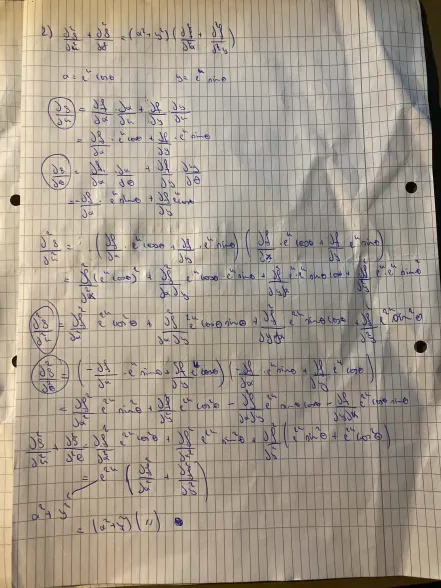 2) ∂²z/∂u² + ∂²z/∂θ² = (x²+y²) (∂²f/∂x² + ∂²f/∂y²)
x = e^u cosθ y = e^u sinθ
∂z/∂u = ∂f/∂x · ∂x/∂u + ∂f/∂y · ∂y/∂u
= ∂f/∂x · e^u cosθ + ∂f/∂y · e^u sinθ
∂z/∂θ = ∂f/∂x · ∂x/∂θ + ∂f/∂y · ∂y/∂θ
= -∂f/∂x · e^u sinθ + ∂f/∂y e^u cosθ
∂²z/∂u² = (∂f/∂x · e^u cosθ + ∂f/∂y · e^u sinθ) (∂f/∂x · e^u cosθ + ∂f/∂y e^u sinθ)
= ∂²f/∂x² (e^u cosθ)² + ∂²f/∂x∂y e^u cosθ · e^u sinθ + ∂²f/∂y∂x e^u · e^u sinθ cosθ + ∂²f/∂y² e^u · e^u sin²θ
∂²z/∂u² = ∂²f/∂x² e^2u cos²θ + ∂²f/∂x∂y e^2u cosθ sinθ + ∂²f/∂y∂x e^2u sinθ cosθ + ∂²f/∂y² e^2u sin²θ
∂²z/∂θ² = (-∂f/∂x · e^u sinθ + ∂f/∂y e^u cosθ) (-∂f/∂x · e^u sinθ + ∂f/∂y e^u cosθ)
= ∂²f/∂x² e^2u sin²θ + ∂²f/∂y² e^2u cos²θ - ∂²f/∂x∂y e^2u sinθ cosθ - ∂²f/∂y∂x e^2u cosθ sinθ
∂²z/∂u² + ∂²z/∂θ² = ∂²f/∂x² e^2u cos²θ + ∂²f/∂x² e^2u sin²θ + ∂²f/∂y² (e^2u sin²θ + e^2u cos²θ)
= e^2u (∂²f/∂x² + ∂²f/∂y²)
x² + y²
= (x²+y²) (")